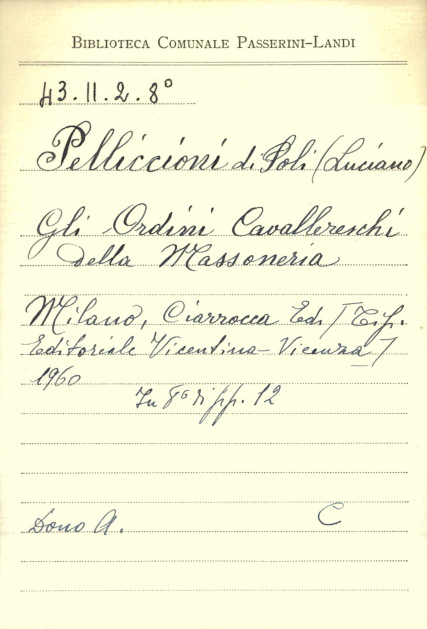 BIBLIOTECA COMUNALE PASSERINI-LANDI
43.II.2.8°
Pelliccioni di Poli (Luciano)
Gli Ordini Cavallereschi
della Massoneria
Milano, Ciarrocca Ed. / Tip.
Editoriale Vicentina - Vicenza /
1960
In 8° di pp. 12
Dono A.
C